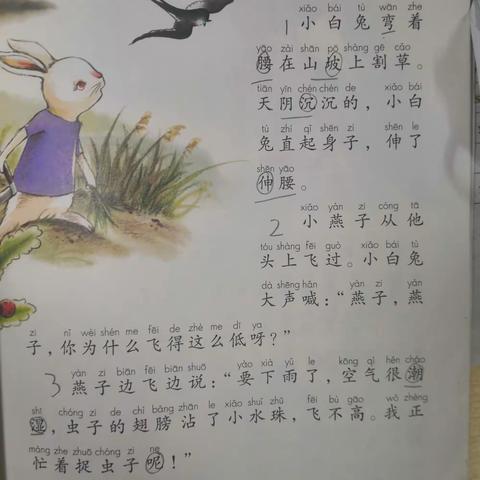 xiǎo bái tù wān zhe
1 小白兔弯着
yāo zài shān pō shàng gē cǎo
腰在山坡上割草。
tiān yīn chén chén de xiǎo bái
天阴沉沉的，小白
tù zhí qǐ shēn zi shēn le
兔直起身子，伸了
shēn yāo
伸腰。
xiǎo yàn zi cóng tā
2 小燕子从他
tóu shàng fēi guò xiǎo bái tù
头上飞过。小白兔
dà shēng hǎn yàn zi yàn
大声喊：“燕子，燕
zi nǐ wèi shén me fēi de zhè me dī ya
子，你为什么飞得这么低呀？”
yàn zi biān fēi biān shuō yào xià yǔ le kōng qì hěn cháo
3 燕子边飞边说：“要下雨了，空气很潮
shī chóng zi de chì bǎng zhān le xiǎo shuǐ zhū fēi bù gāo wǒ zhèng
湿，虫子的翅膀沾了小水珠，飞不高。我正
máng zhe zhuō chóng zi ne
忙着捉虫子呢！”